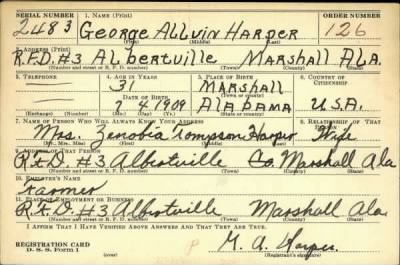 SERIAL NUMBER 1. NAME (Print) ORDER NUMBER
2483 George Allvin Harper 126
(First) (Middle) (Last)
2. ADDRESS (Print)
R.F.D. #3 Albertville Marshall Ala.
(Number and street or R. F. D. number) (Town) (County) (State)
3. TELEPHONE 4. AGE IN YEARS 5. PLACE OF BIRTH 6. COUNTRY OF CITIZENSHIP
31 Marshall
DATE OF BIRTH (Town or county)
4 1909 Alabama U.S.A.
(Exchange) (No.) (Mo.) (Day) (Yr.) (State or country)
7. NAME OF PERSON WHO WILL ALWAYS KNOW YOUR ADDRESS 8. RELATIONSHIP OF THAT PERSON
Mrs. Zenobia Tompson Harper Wife
(Mr., Mrs., Miss) (First) (Middle) (Last)
9. ADDRESS OF THAT PERSON
R.F.D. #3 Albertville Co. Marshall Ala
(Number and street or R. F. D. number) (Town) (County) (State)
10. EMPLOYER'S NAME
Farmer
11. PLACE OF EMPLOYMENT OR BUSINESS
R.F.D. #3 Albertville Marshall Ala.
(Number and street or R. F. D. number) (Town) (County) (State)
I AFFIRM THAT I HAVE VERIFIED ABOVE ANSWERS AND THAT THEY ARE TRUE.
REGISTRATION CARD
D. S. S. Form 1 A. Harper
(Registrant's signature)